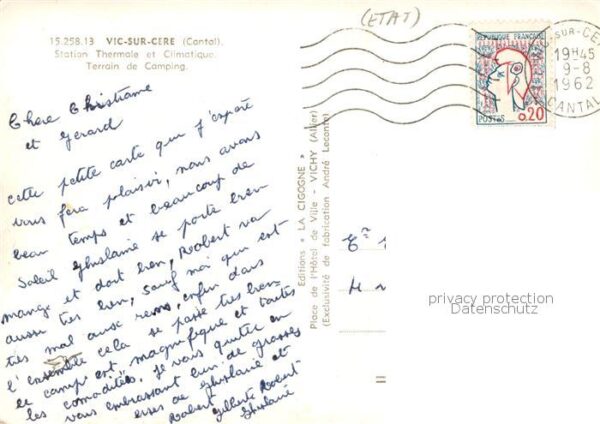 (ETAT)
15.258.13 VIC-SUR-CERE (Cantal).
Station Thermale et Climatique.
Terrain de Camping.
Chere Christiane
et Gerard
cette petite carte qui j'espère
vous fera plaisir, nous avons
beau temps et beaucoup de
Soleil Ghislaine se porte bien
mange et dort bien, Robert va
aussi tres bien, sauf moi qui est
très mal aux reins, enfin dans
l'ensemble cela se passe tres bien
ce camp est magnifique et toutes
les comoditées. Je vous quitter en
vous embrassant bien de grosses
de Ghislaine et
Robert Gilberte Robert
Ghislaine
Editions « LA CIGOGNE »
Place de l'Hôtel de Ville - VICHY (Allier)
(Exclusivité de fabrication André Leconte)
REPUBLIQUE FRANÇAISE
POSTES 0,20
VIC-SUR-CE
19H45
9-8
1962
CANTAL
privacy protection
Datenschutz